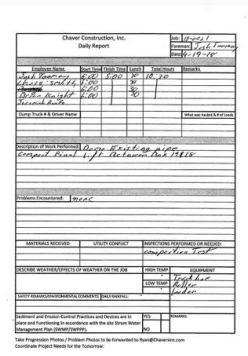 Chaver Construction, Inc.
Daily Report
Job:
Foreman: Josh
Date: 4-19-18
Employee Name Start Time Finish Time Lunch Total Hours Remarks
Josh 6:00 5:00 30
6:00 30
6:00 30
Brian Knight 6:00 30
Dump Truck # & Driver Name What was hauled & # of Loads
Description of Work Performed: Demo Existing pipe
Compact Final Lift Between
Problems Encountered: none
MATERIALS RECEIVED UTILITY CONFLICT INSPECTIONS PERFORMED OR NEEDED:
compaction Test
DESCRIBE WEATHER/EFFECTS OF WEATHER ON THE JOB HIGH TEMP EQUIPMENT
LOW TEMP Roller
SAFETY REMARKS/ENVIRONMENTAL COMMENTS DAILY RAINFALL:
Sediment and Erosion Control Practices and Devices are in YES REMARKS:
place and Functioning in accordance with the site Storm Water
Management Plan (SWMP/SWPPP). NO
Take Progression Photos / Problem Photos to be forwarded to Ryan@Chaversinc.com
Coordinate Project Needs for the Tomorrow: